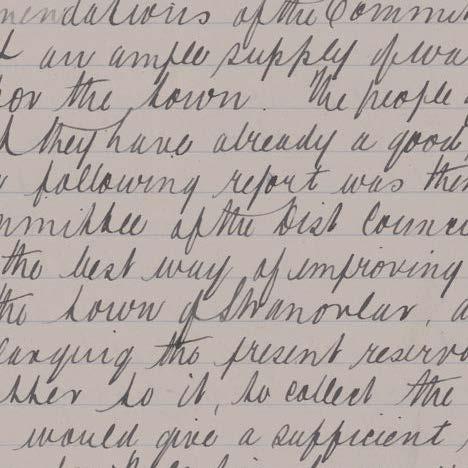 mendations of the Commit
an ample supply of wa
for the town. The people
they have already a good
following report was then
mmittee of the Dist Counci
the best way of improving
the town of Stranorlar, a
larging the present reservo
to it, to collect the
would give a sufficient